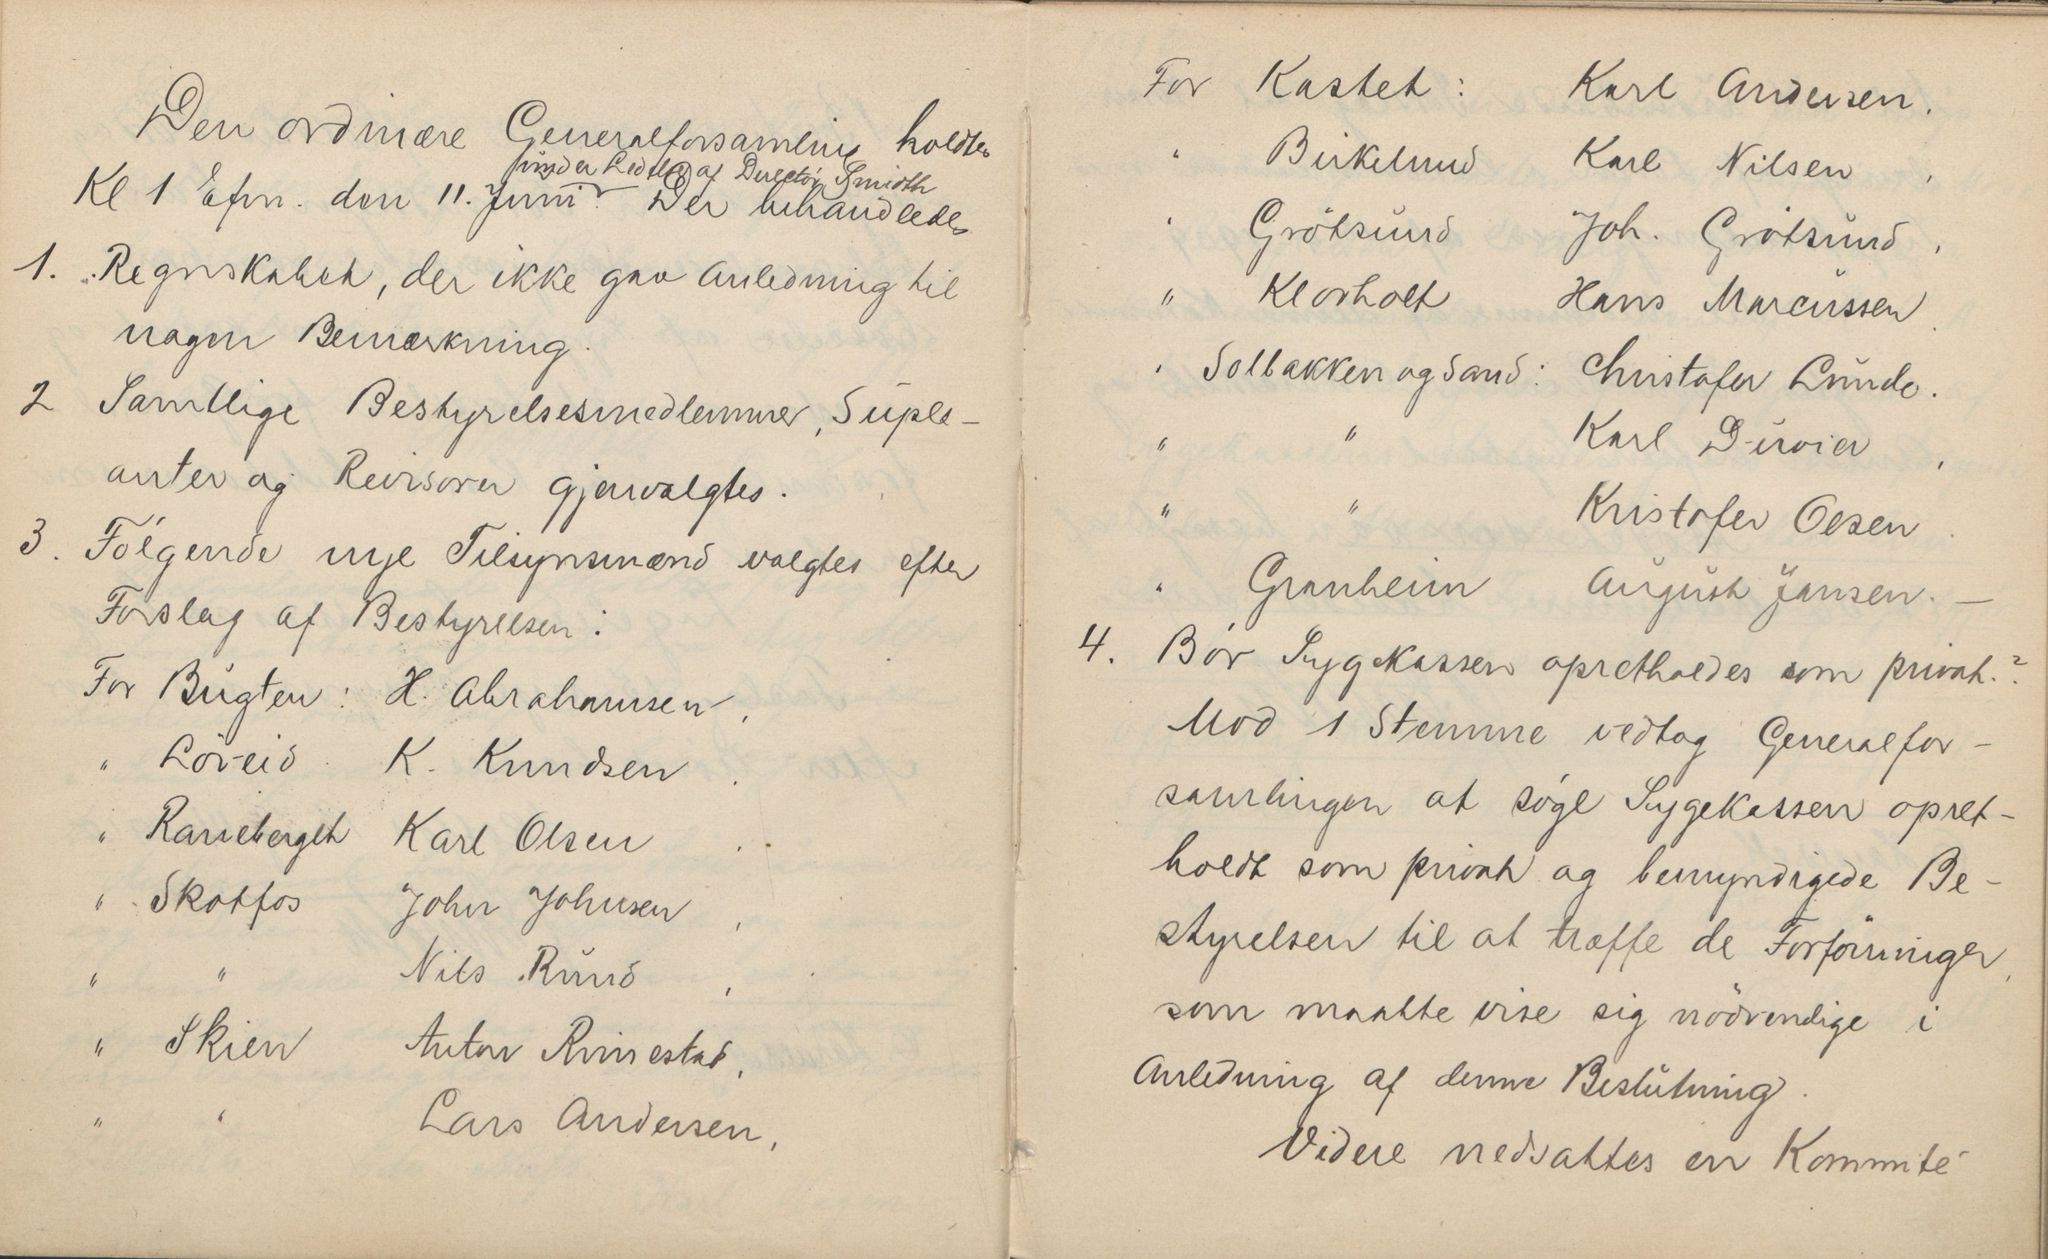 Den ordinære Generalforsamling holdtes
under Ledelse af Director Smidth
Kl 1 Efm. den 11. Juni. Der behandledes
1. Regnskabet, der ikke gav Anledning til
nogen Bemærkning.
2 Samtlige Bestyrelsesmedlemmer, Suple-
anter og Revisorer gjenvalgtes.
3. Følgende nye Tilsynsmænd valgtes efter
Forslag af Bestyrelsen:
For Bugten: H. Abrahamsen,
" Löveid K. Knudsen
" Raneberget Karl Olsen
" Skotfos John Johnsen,
" " Nils Rund,
" Skien Anton Rimestad,
" " Lars Andersen,
For Kastet: Karl Andersen.
" Birkelund Karl Nilsen,
" Grötsund Joh. Grötsund,
" Klovholt Hans Marcussen.
" Solbakken og Sand: Christofer Lunde.
" " Karl
" " Kristofer Olsen.
" Granheim August Jansen. —
4. Bør Sygekassen opretholdes som privat.?
Mod 1 Stemme vedtog Generalfor-
samlingen at søge Sygekassen opret-
holdt som privat og bemyndigede Be-
styrelsen til at træffe de Forföininger,
som maatte vise sig nödvendige i
Anledning af denne Beslutning.
Videre nedsattes en Kommité